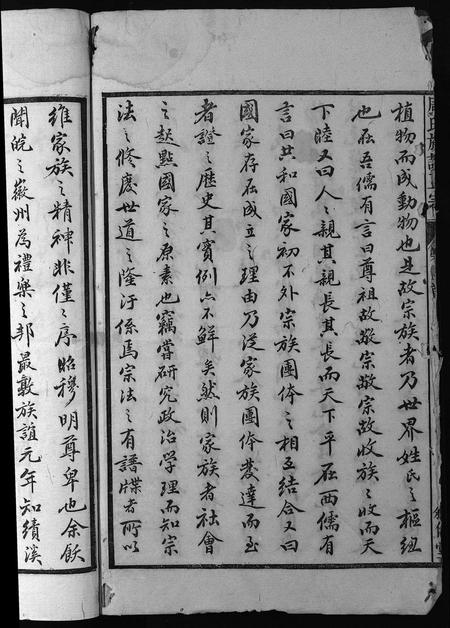 植物而成動物也是故宗族者乃世界姓氏之樞紐
也在吾儒有言曰尊祖故敬宗敬宗故收族之收而天
下睦又曰人之親其親長其長而天下平在西儒有
言曰共和國家初不外宗族團体之相互結合又曰
國家存在成立之理由乃從家族團体發達而至
者證之歷史其實例亦不鮮矣然則家族者社會
之起點國家之原素也竊嘗研究政治学理而知宗
法之修廢世道之隆汙係焉宗法之有譜牒者所以
維家族之精神非僅僅序昭穆明尊卑也余飫
聞皖之徽州為禮樂之邦最敦族誼元年知績溪